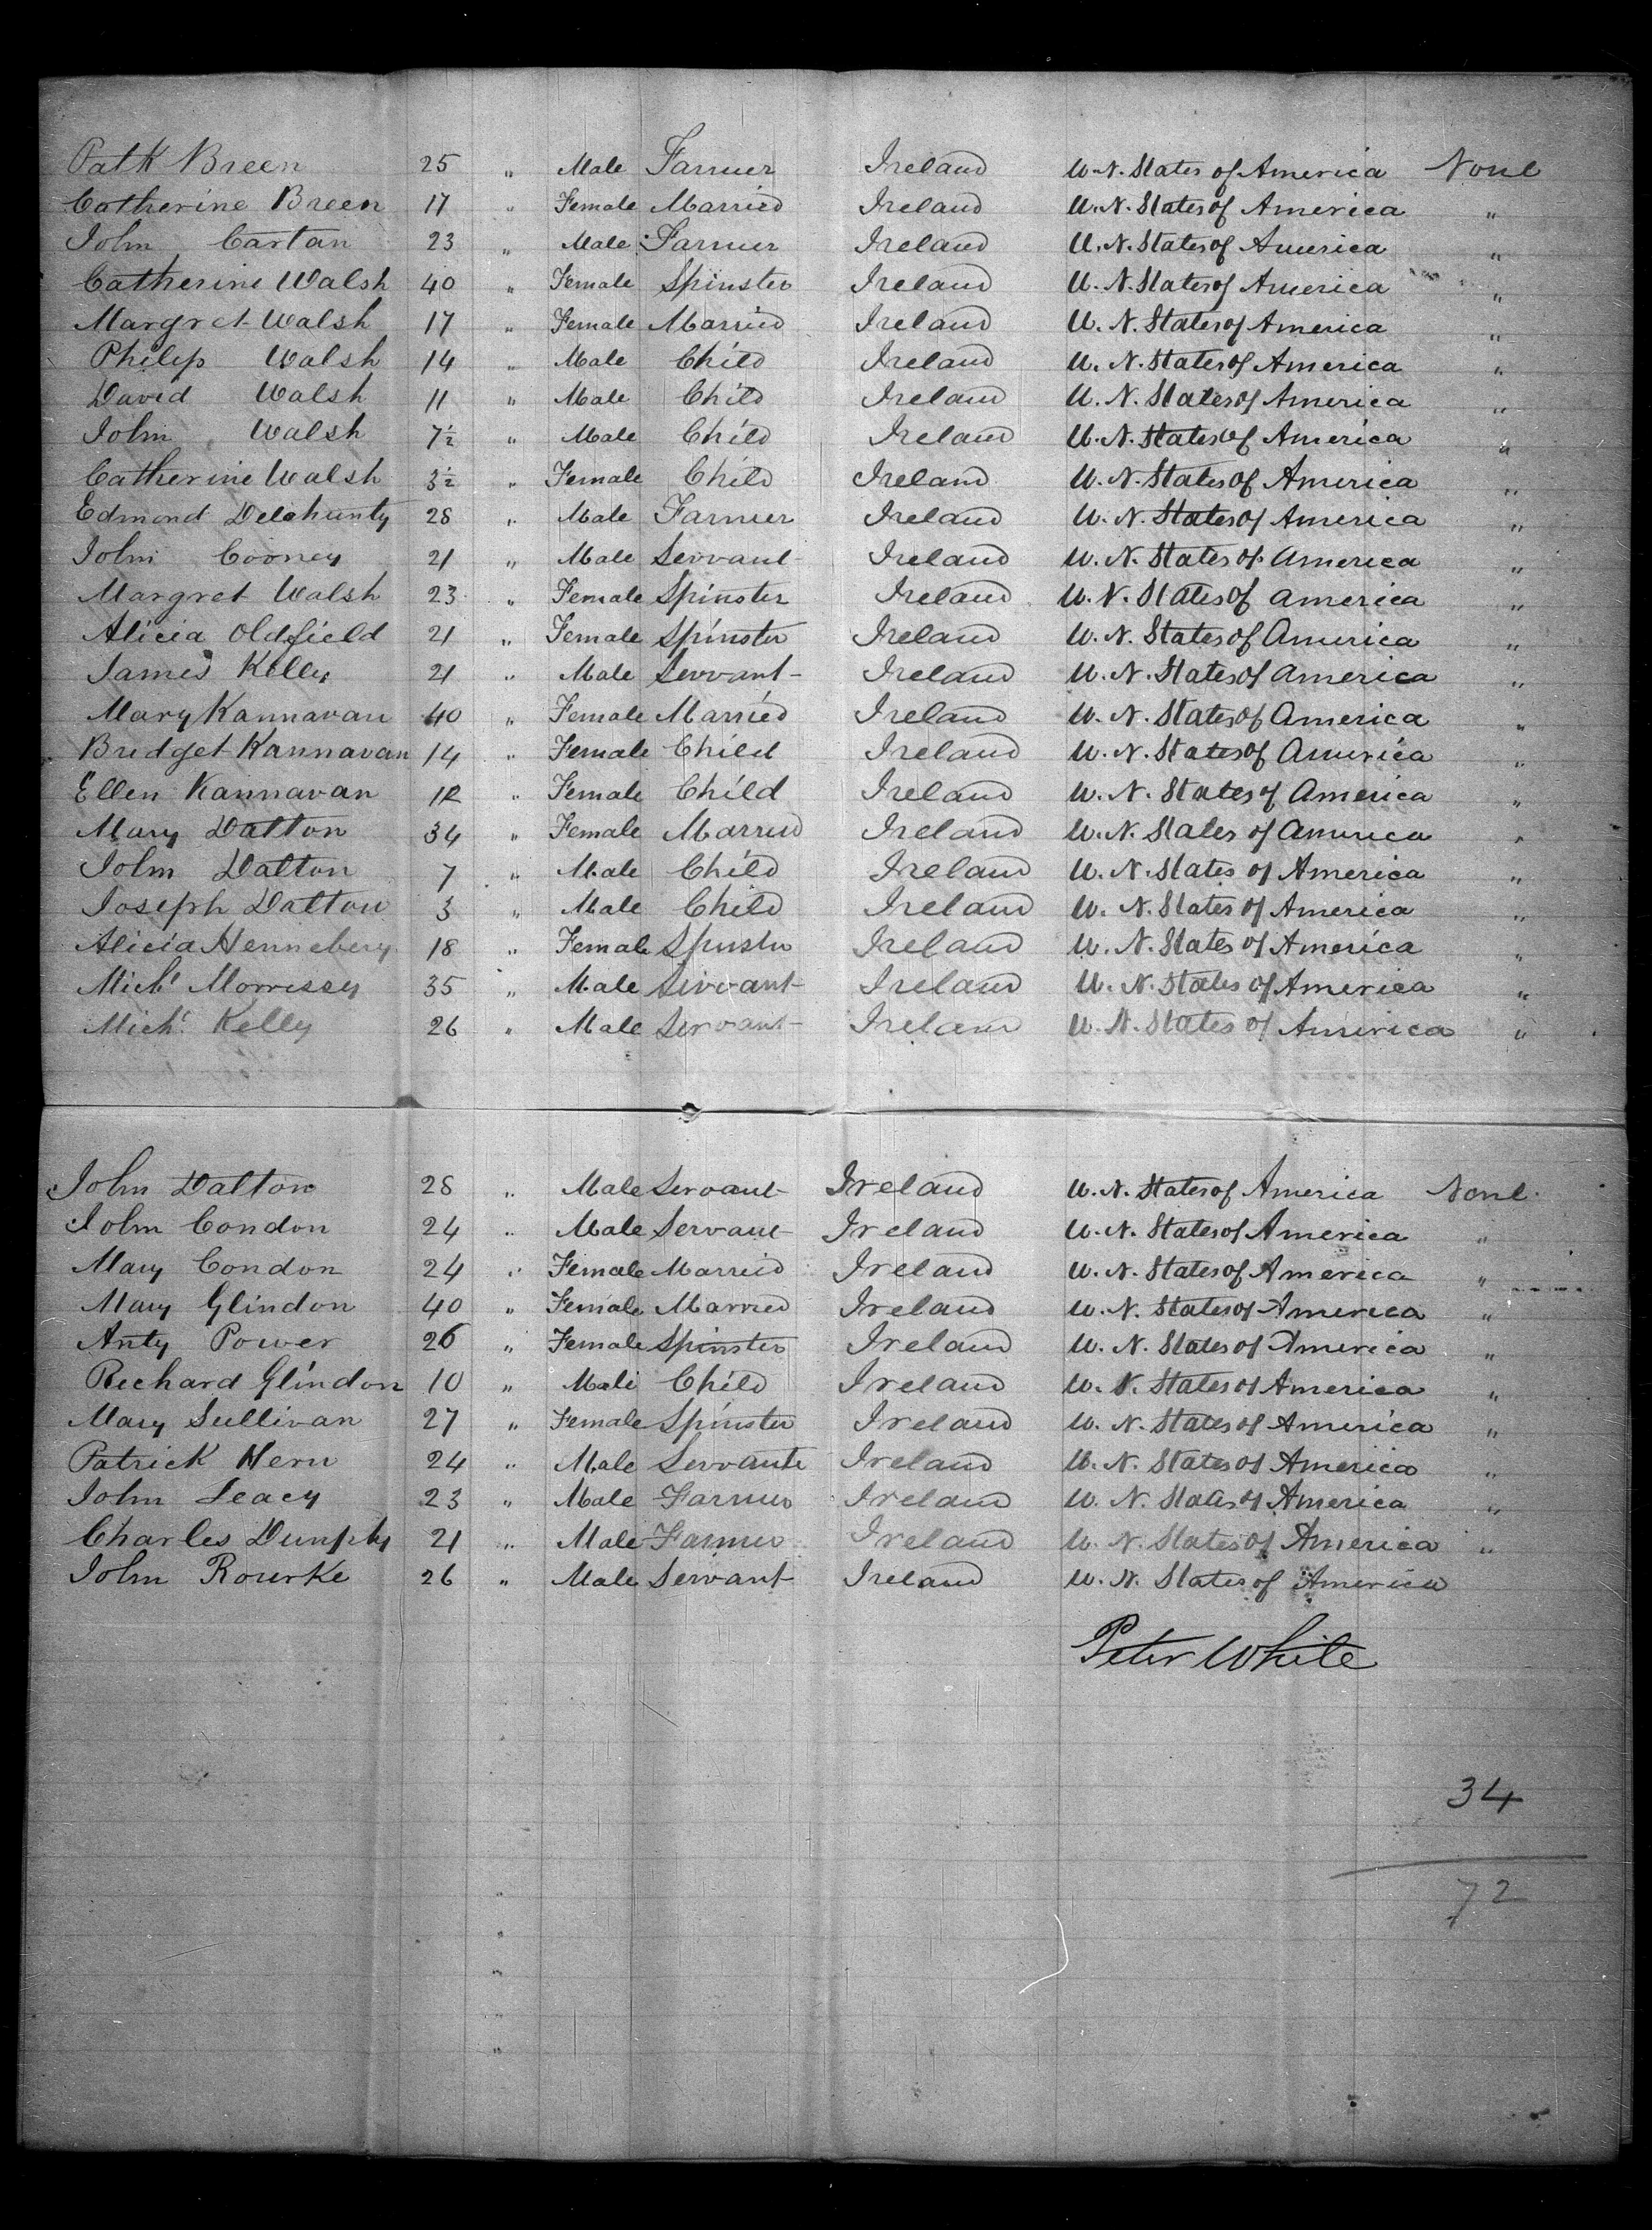 Patk Breen 25 " Male Farmer Ireland U.N. States of America None
Catherine Breen 17 " Female Married Ireland U.N. States of America "
John Cartan 23 " Male Farmer Ireland U.N. States of America "
Catherine Walsh 40 " Female Spinster Ireland U.N. States of America "
Margret Walsh 17 " Female Married Ireland U.N. States of America "
Philip Walsh 14 " Male Child Ireland U.N. States of America "
David Walsh 11 " Male Child Ireland U.N. States of America "
John Walsh 7½ " Male Child Ireland U.N. States of America "
Catherine Walsh 3½ " Female Child Ireland U.N. States of America "
Edmond Delahunty 28 " Male Farmer Ireland U.N. States of America "
John Cooney 21 " Male Servant Ireland U.N. States of America "
Margret Walsh 23 " Female Spinster Ireland U.N. States of America "
Alicia Oldfield 21 " Female Spinster Ireland U.N. States of America "
James Kelly 21 " Male Servant Ireland U.N. States of America "
Mary Kannavan 40 " Female Married Ireland U.N. States of America "
Bridget Kannavan 14 " Female Child Ireland U.N. States of America "
Ellen Kannavan 12 " Female Child Ireland U.N. States of America "
Mary Dalton 34 " Female Married Ireland U.N. States of America "
John Dalton 7 " Male Child Ireland U.N. States of America "
Joseph Dalton 3 " Male Child Ireland U.N. States of America "
Alicia Hennebery 18 " Female Spinster Ireland U.N. States of America "
Michl Morrissey 35 " Male Servant Ireland U.N. States of America "
Michl Kelly 26 " Male Servant Ireland U.N. States of America "
John Dalton 28 " Male Servant Ireland U.N. States of America None
John Condon 24 " Male Servant Ireland U.N. States of America "
Mary Condon 24 " Female Married Ireland U.N. States of America "
Mary Glindon 40 " Female Married Ireland U.N. States of America "
Anty Power 26 " Female Spinster Ireland U.N. States of America "
Richard Glindon 10 " Male Child Ireland U.N. States of America "
Mary Sullivan 27 " Female Spinster Ireland U.N. States of America "
Patrick Hern 24 " Male Servante Ireland U.N. States of America "
John Leacy 23 " Male Farmer Ireland U.N. States of America "
Charles Dunphy 21 " Male Farmer Ireland U.N. States of America "
John Rourke 26 " Male Servant Ireland U.N. States of America
Peter White
34
72